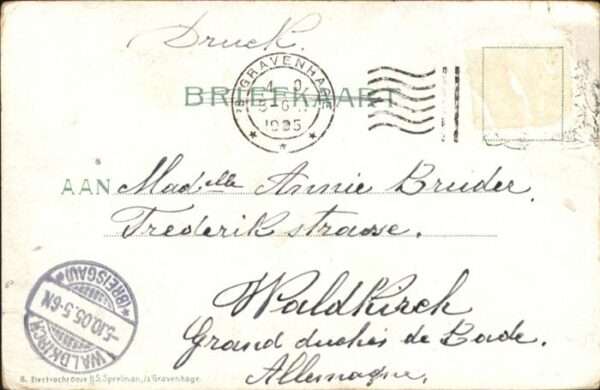 Druck.
'S GRAVENHAGE
4 9
5-6 N
1905
BRIEFKAART
AAN Madelle Annie Bruder.
Frederik strasse.
Waldkirch
Grand duchés de Bade.
Allemagne.
WALDKIRCH
5.10.05.5-6N.
(BREISGAU)
Electrochrome S. Spreiman, 's Gravenhage.